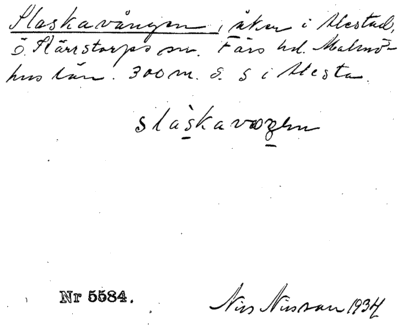 Slaskavången, åker i Alestad,
Ö. Kärrstorps sn. Färs hd. Malmö-
hus län. 300 m. ö. S i Alesta.
slaskavaŋen
Nr 5584.
Nils Nilsson 1934